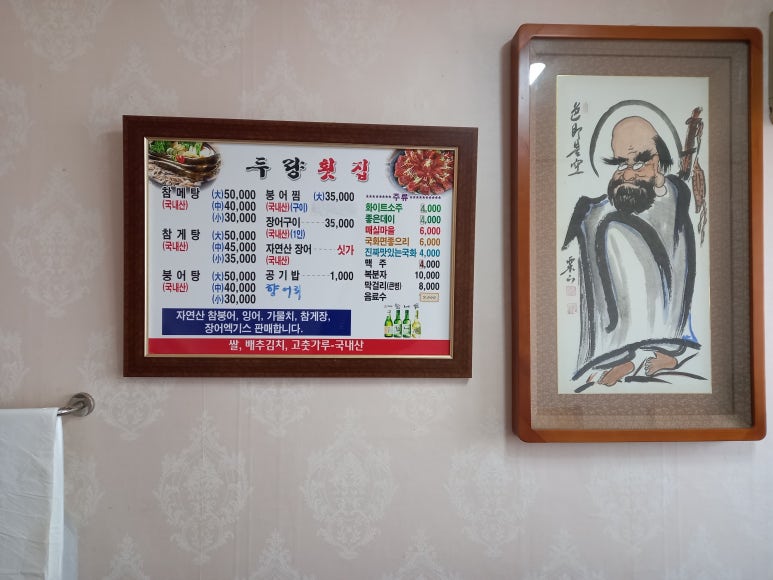 두량 횟집
참메탕 (大)50,000
(국내산) (中)40,000
(小)30,000
참게탕 (大)50,000
(국내산) (中)45,000
(小)35,000
붕어탕 (大)50,000
(국내산) (中)40,000
(小)30,000
붕어찜 (大)35,000
(국내산)(구이)
장어구이 35,000
(국내산)(1인)
자연산 장어 싯가
(국내산)
공기밥 1,000
향어회
주류
화이트소주 4,000
좋은데이 4,000
매실마을 6,000
국화면좋으리 6,000
진짜맛있는국화 4,000
맥주 4,000
복분자 10,000
막걸리(큰병) 8,000
음료수
자연산 참붕어, 잉어, 가물치, 참게장,
장어엑기스 판매합니다.
쌀, 배추김치, 고춧가루-국내산